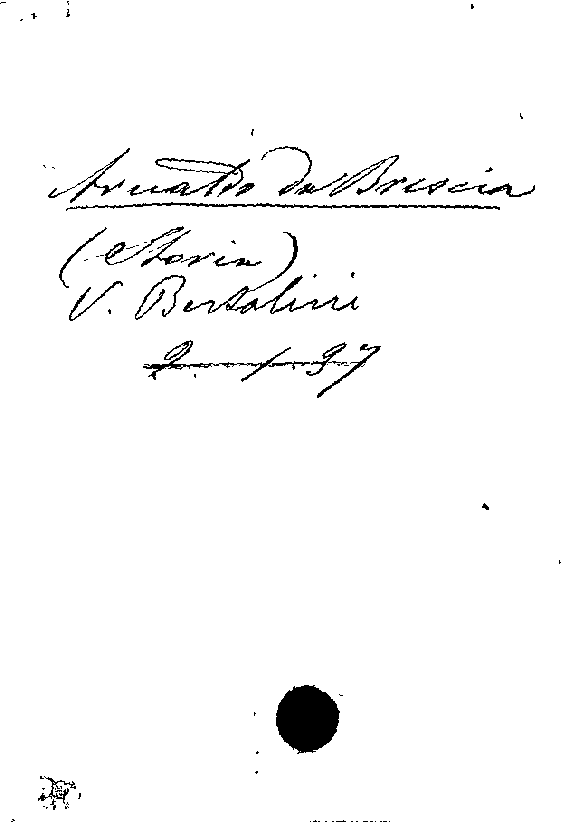 Arnaldo da Brescia
(Storia)
V. Bertolini
2. 1. 37